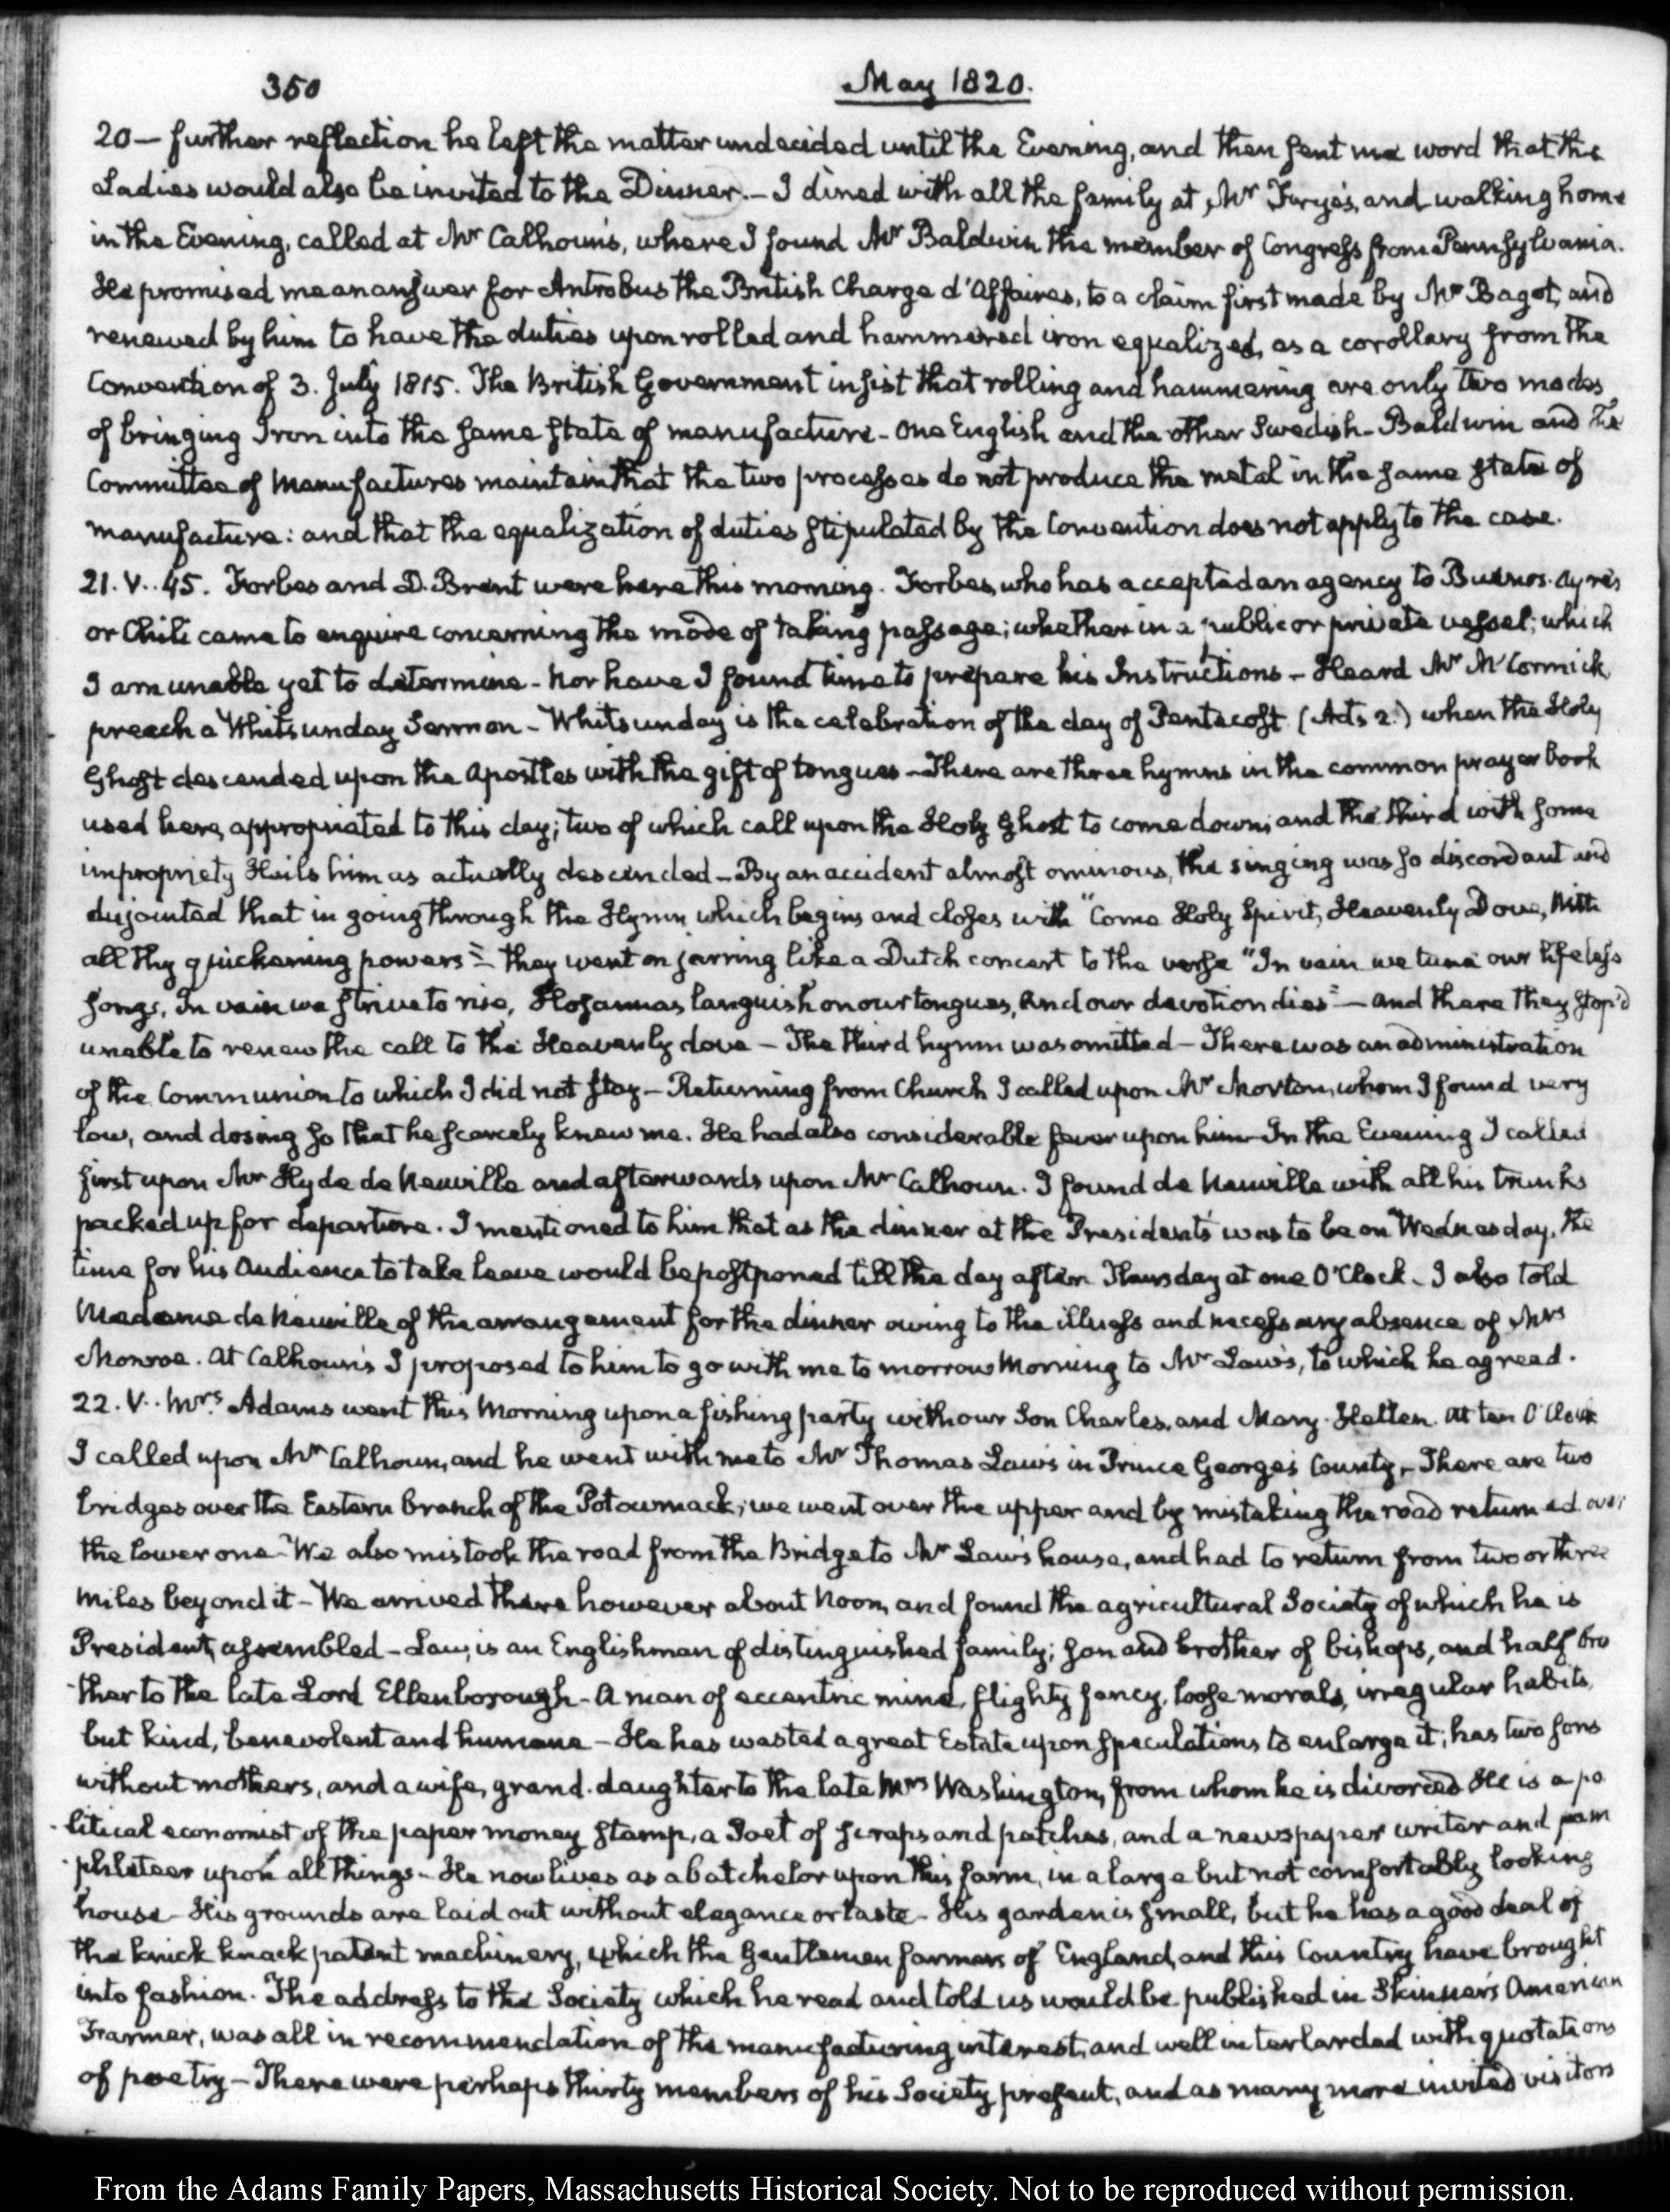 350
May 1820.
20 — further reflection he left the matter undecided until the Evening, and then sent me word that the
Ladies would also be invited to the Dinner. — I dined with all the family at Mr Frye's, and walking home
in the Evening, called at Mr Calhoun's, where I found Mr Baldwin the member of Congress from Pennsylvania.
He promised me an answer for Antrobus the British Chargé d'Affaires, to a claim first made by Mr Bagot, and
renewed by him to have the duties upon rolled and hammered iron equalized, as a corollary from the
Convention of 3. July 1815. The British Government insist that rolling and hammering are only two modes
of bringing Iron into the same state of manufacture - One English and the other Swedish - Baldwin and the
Committee of Manufactures maintain that the two processes do not produce the metal in the same state of
manufacture: and that the equalization of duties stipulated by the Convention does not apply to the case.
21. V.. 45. Forbes and D. Brent were here this morning. Forbes, who has accepted an agency to Buenos-Ayres
or Chili came to enquire concerning the mode of taking passage; whether in a public or private vessel; which
I am unable yet to determine - Nor have I found time to prepare his Instructions - Heard Mr McCormick,
preach a Whitsunday Sermon - Whitsunday is the celebration of the day of Pentecost (Acts 2.) when the Holy
Ghost descended upon the Apostles with the gift of tongues - There are three hymns in the common prayer book
used here, appropriated to this day; two of which call upon the Holy Ghost to come down; and the third with some
impropriety Hails him as actually descended - By an accident almost ominous, the singing was so discordant and
disjointed that in going through the Hymn, which begins and closes with "Come Holy Spirit, Heavenly Dove, With
all thy quickening powers" - they went on jarring like a Dutch concert to the verse "In vain we tune our lifeless
songs, In vain we strive to rise, Hosannas languish on our tongues, And our devotion dies" — and there they stop'd
unable to renew the call to the Heavenly dove - The third hymn was omitted - There was an administration
of the Communion to which I did not stay - Returning from Church I called upon Mr Morton, whom I found very
low, and dosing so that he scarcely knew me. He had also considerable fever upon him - In the Evening I called
first upon Mr Hyde de Neuville and afterwards upon Mr Calhoun. I found de Neuville with all his trunks
packed up for departure. I mentioned to him that as the dinner at the President's was to be on Wednesday, the
time for his Audience to take leave would be postponed till the day after. Thursday at one O'Clock. I also told
Madame de Neuville of the arrangement for the dinner owing to the illness and necessary absence of Mrs
Monroe. At Calhoun's I proposed to him to go with me to morrow Morning to Mr Law's, to which he agreed.
22. V.. Mrs. Adams went this Morning upon a fishing party with our Son Charles, and Mary Hellen. At ten O'Clock
I called upon Mr Calhoun, and he went with me to Mr Thomas Law's in Prince George's County, - There are two
bridges over the Eastern branch of the Potowmack; we went over the upper and by mistaking the road returned over
the lower one - We also mistook the road from the Bridge to Mr Law's house, and had to return from two or three
miles beyond it - We arrived there however about Noon, and found the agricultural Society of which he is
President, assembled - Law, is an Englishman of distinguished family; son and brother of bishops, and half bro
-ther to the late Lord Ellenborough - A man of eccentric mind, flighty fancy, loose morals, irregular habits,
but kind, benevolent and humane - He has wasted a great Estate upon speculations to enlarge it; has two sons
without mothers, and a wife, grand-daughter to the late Mrs Washington, from whom he is divorced He is a po
-litical economist of the paper money stamp, a Poet of scraps and patches, and a newspaper writer and pam
-phleteer upon all things - He now lives as a batchelor upon this farm, in a large but not comfortably looking
house - His grounds are laid out without elegance or taste - His garden is small, but he has a good deal of
the knick knack patent machinery, which the Gentlemen farmers of England, and this Country have brought
into fashion. The address to the Society which he read and told us would be published in Skinner's American
Farmer, was all in recommendation of the manufacturing interest, and well interlarded with quotations
of poetry - There were perhaps thirty members of his Society present, and as many more invited visitors
From the Adams Family Papers, Massachusetts Historical Society. Not to be reproduced without permission.